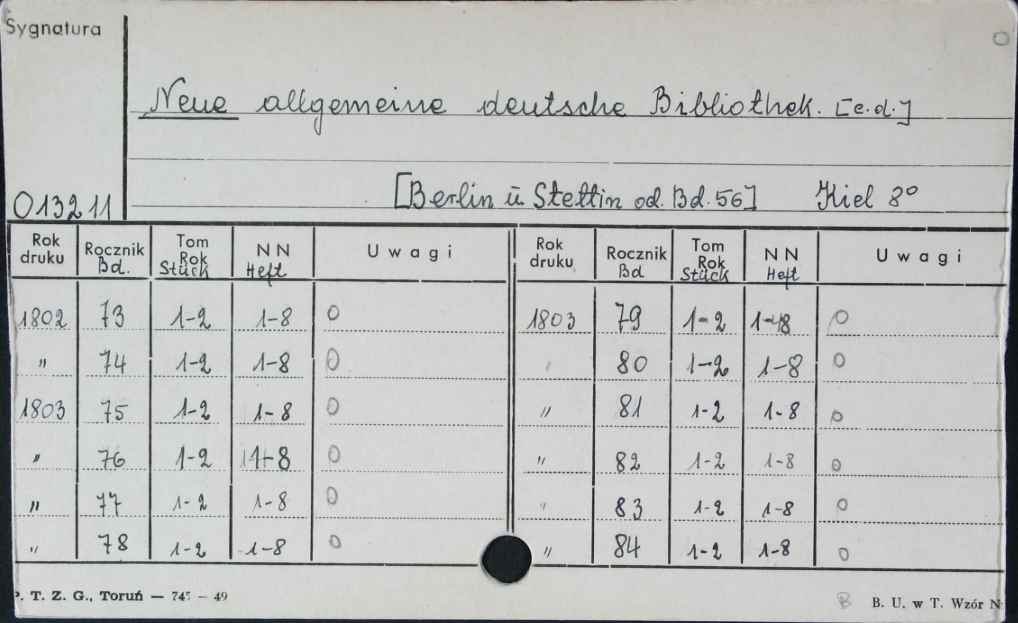 Sygnatura
Neue allgemeine deutsche Bibliothek. [c.d.]
013211 [Berlin ü Stettin od. Bd. 56] Kiel 8°
Rok druku Rocznik Bd. Tom Rok Stück NN Heft Uwagi Rok druku Rocznik Bd Tom Rok Stück NN Heft Uwagi
1802 73 1-2 1-8 O 1803 79 1-2 1-8 O
" 74 1-2 1-8 O " 80 1-2 1-8 O
1803 75 1-2 1-8 O " 81 1-2 1-8 O
" 76 1-2 1-8 O " 82 1-2 1-8 O
" 77 1-2 1-8 O " 83 1-2 1-8 O
" 78 1-2 1-8 O " 84 1-2 1-8 O
P. T. Z. G., Toruń — 747 — 49 B B. U. w T. Wzór N